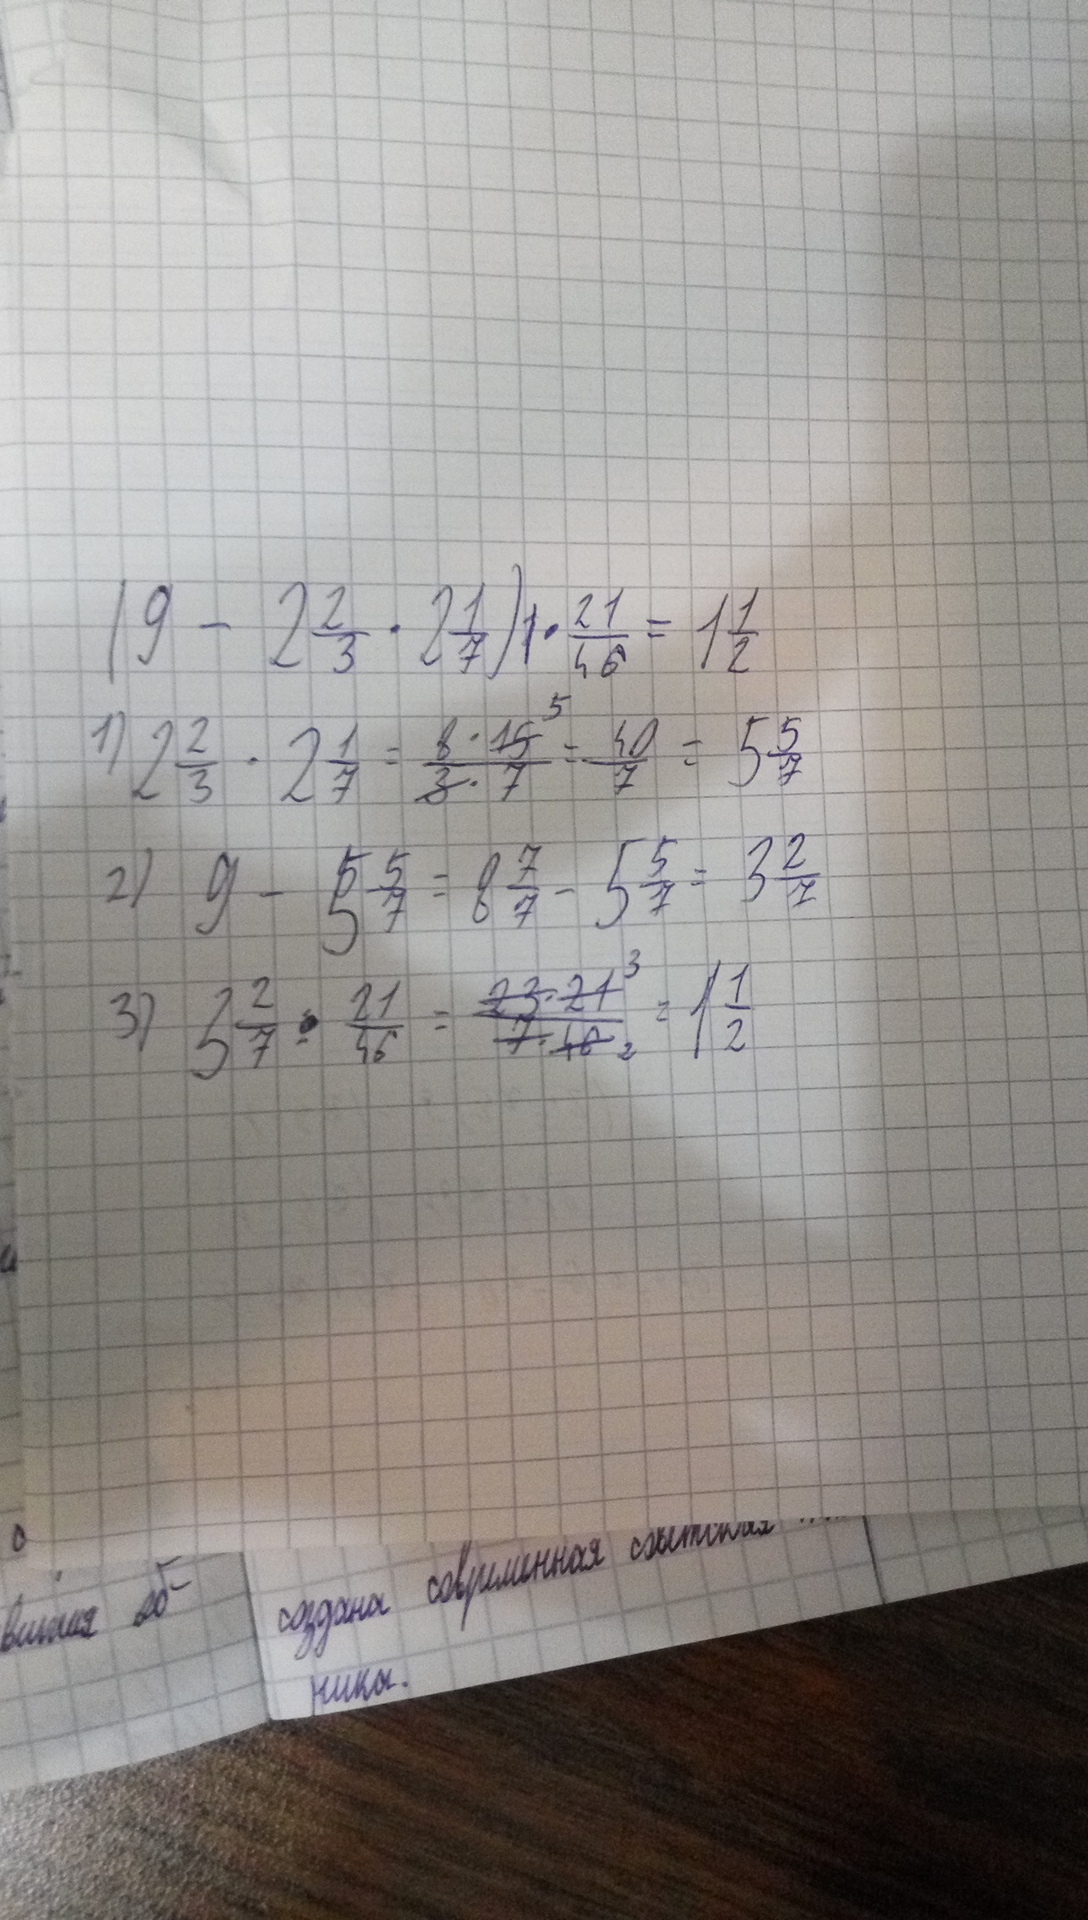 (9 - 2 2/3 · 2 1/7) · 21/46 = 1 1/2
1) 2 2/3 · 2 1/7 = 8 · 15 5 / 3 · 7 = 40/7 = 5 5/7
2) 9 - 5 5/7 = 8 7/7 - 5 5/7 = 3 2/7
3) 3 2/7 · 21/46 = 23 · 21 3 / 7 · 46 2 = 1 1/2
создана современная
ника.